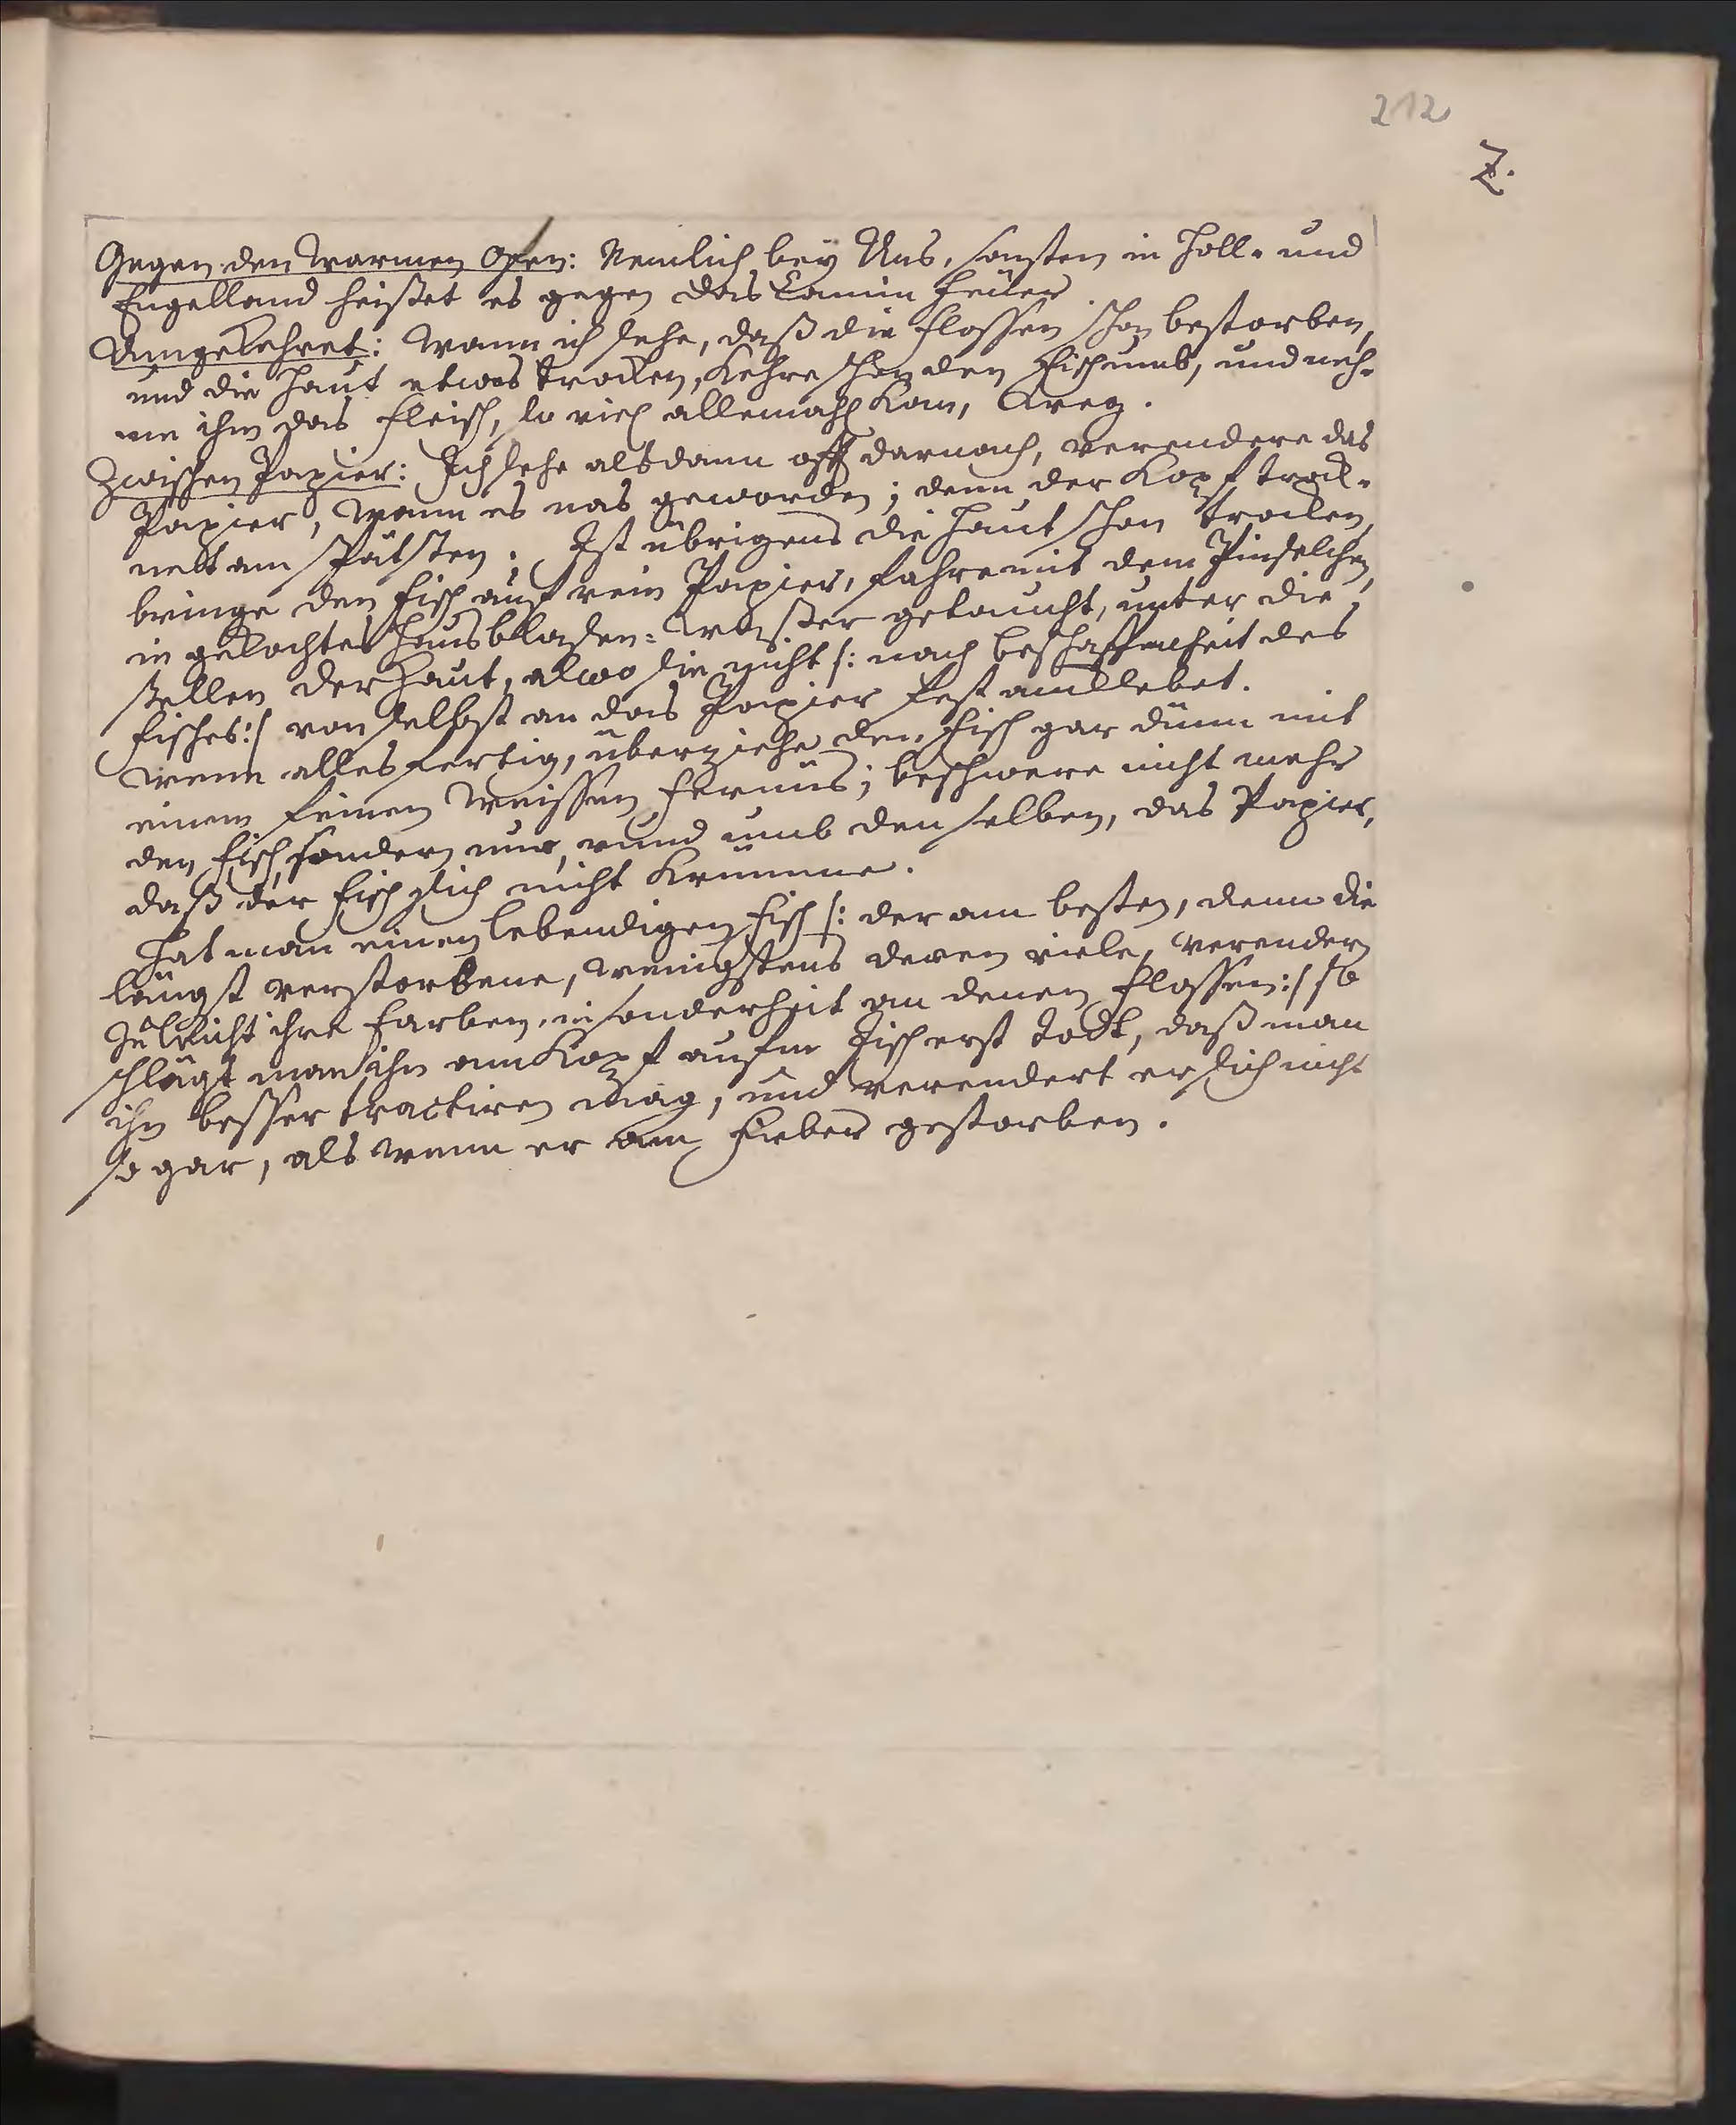 212
Z.
Gegen den warmen Ofen: Nemlich bey Uns, sonsten in Holl- und
Engelland heisset es gegen das Camin Feüer.
Umgekehret: Wann ich sehe, daß die flossen schon bestorben,
und die Haut etwas trocken, kehre schon den Fisch umb, und neh-
me ihm das fleisch, so viel allemahl kan, weg.
Zwischen Papier: Ich sehe alsdann offt darnach, verendere das
Papier, wann es nas geworden; denn der Kopf trock-
net am spätsten. Ist übrigens die Haut schon trocken,
bringe den fisch auf rein Papier, fahre mit dem Pinselchen,
in gekochtes Hausblasen-Wasser getaucht, unter die
stellen der Haut, alwo sie nicht /: nach beschaffenheit des
fisches:/ von selbst an das Papier fest anklebet.
Wenn alles fertig, überziehe den Fisch gar dünn mit
einem feinen weissen fernüs; beschwere nicht mehr
den fisch, sondern nur, rund umb denselben, das Papier,
daß der fisch sich nicht krümme.
Hat man einen lebendigen fisch /: der am besten, denn die
längst verstorbene, wenigstens deren viele, verendern
so leicht ihre farben, insonderheit an denen flossen:/ so
schlägt man ihn am Kopf aufm Tisch erst todt, daß man
ihn besser tractiren mag, und verendert er sich nicht
so gar, als wenn er am Fieber gestorben.